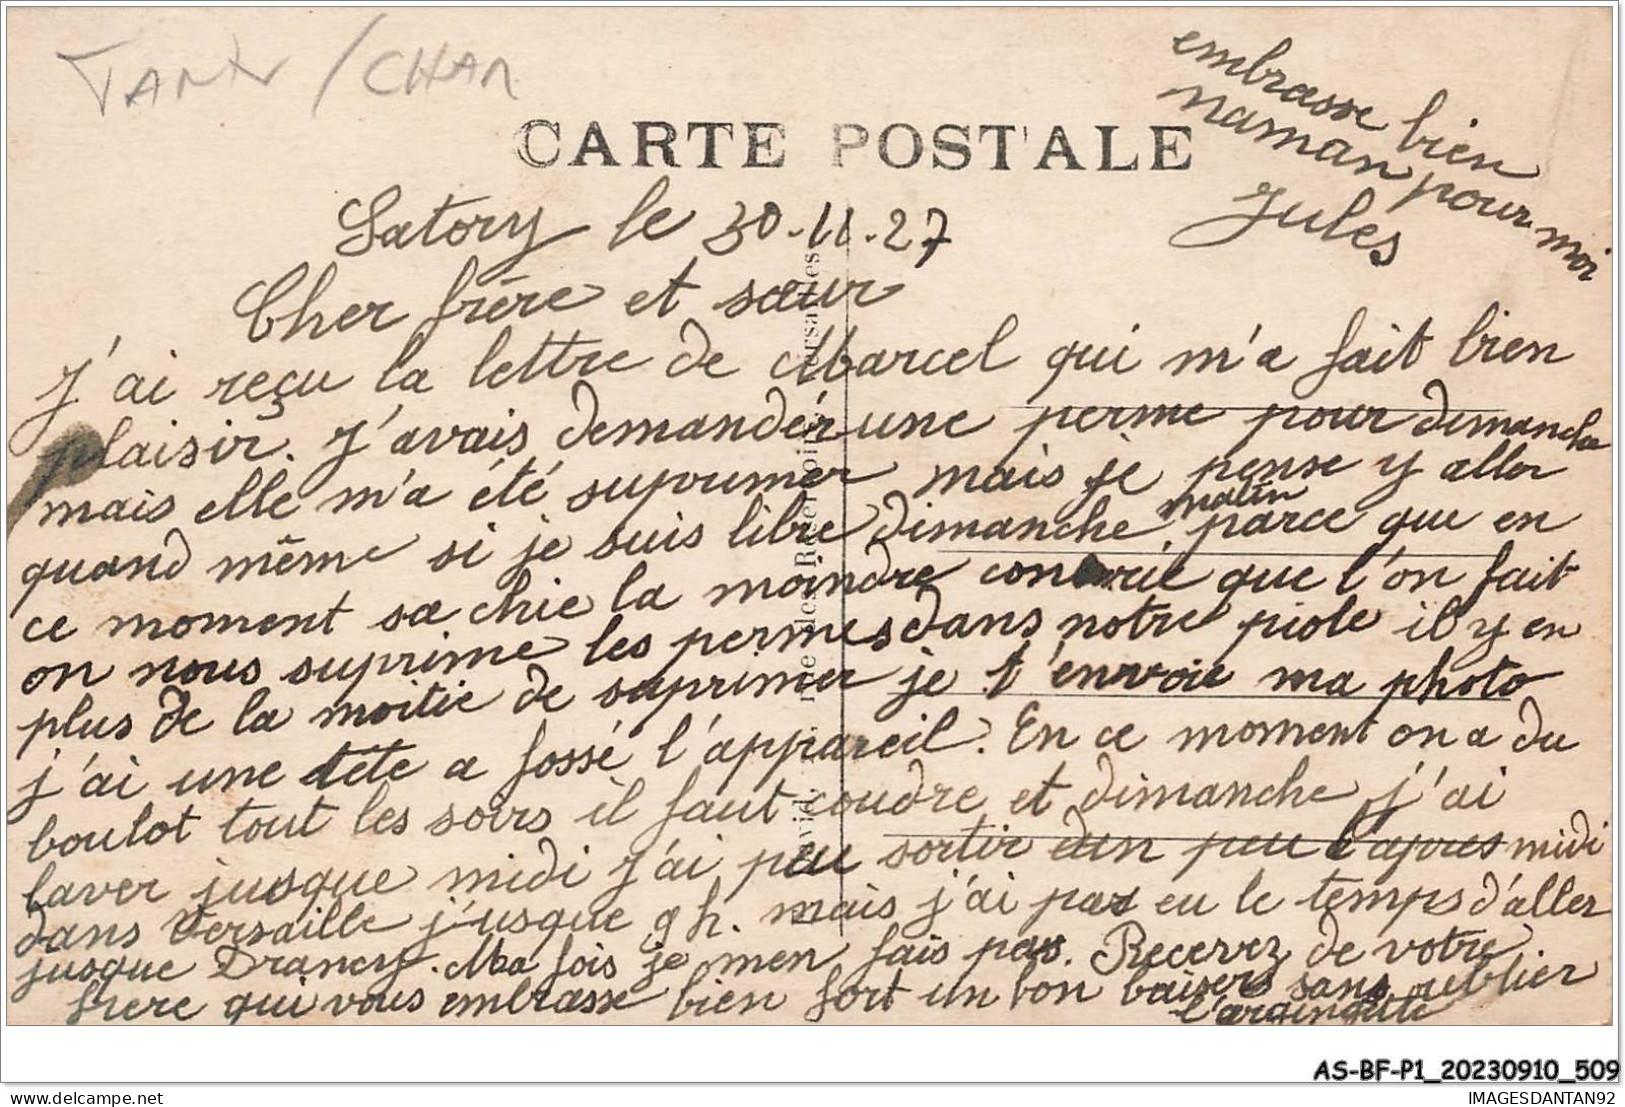 TANK / CHAR
CARTE POSTALE
embrasse bien
maman pour moi
Jules
Satory le 30-11-27
Cher frère et sœur
J'ai reçu la lettre de Marcel qui m'a fait bien
plaisir. J'avais demandér une perme pour dimanche
mais elle m'a été suprimer mais je pense y aller
quand même si je suis libre dimanche matin parce que en
ce moment sa chie la moindre que l'on fait
on nous suprime les permes dans notre piole il y en
plus de la moitie de suprimer je t'envoie ma photo
j'ai une tête a fossé l'appareil. En ce moment on a du
boulot tout les soirs il faut coudre et dimanche j'ai
laver jusque midi j'ai peu sortir un peu l'apres midi
dans Versaille j'usque 9 h. mais j'ai pas eu le temps d'aller
jusque Drancy. Ma fois je men fais pas. Recevez de votre
frere qui vous embrasse bien fort un bon baisers sans oublier
AS-BF-P1_20230910_509
delcampe.net
IMAGESDANTAN92